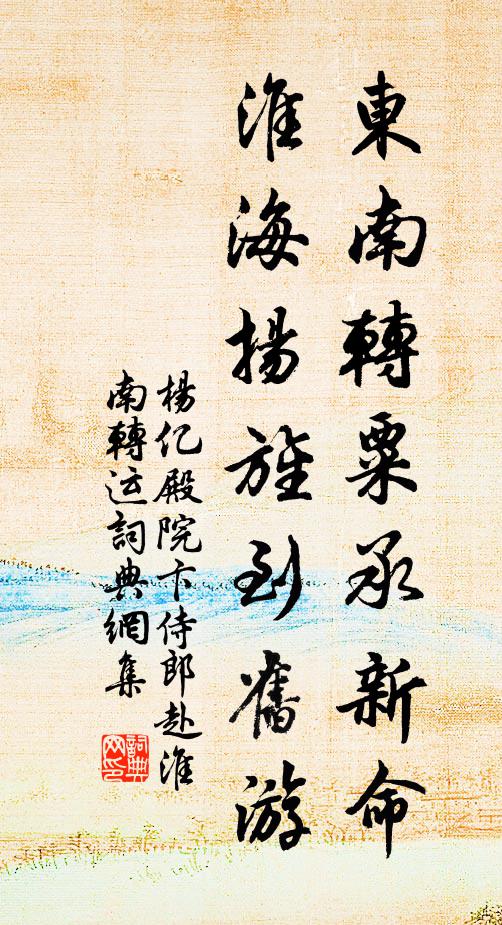 東南轉粟承新命
淮海揚旌到舊游
楊亿殿院卞侍郎赴淮
南轉运詞典網集
詞典
网印